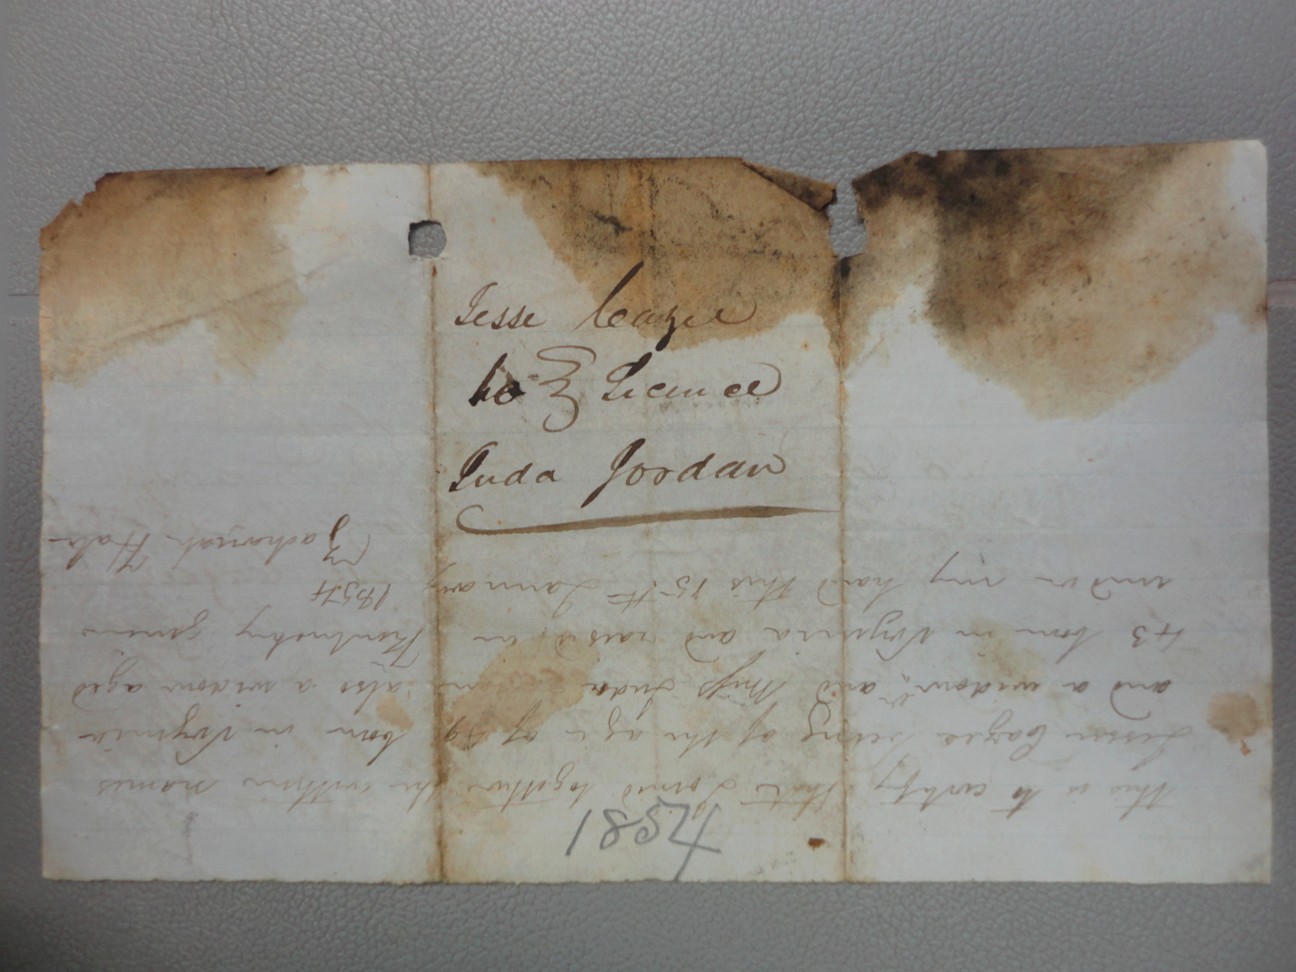 Jesse Cazee
to Licence
Juda Jordan
1854
This is to certify that I joined together the within names
Jesse Cazee being of the age of 49 born in Virginia
and a widower, and Miss Juda also a widow aged
43 born in Virginia and raised in given
under my hand this 15th January 1854
Zachariah Hale